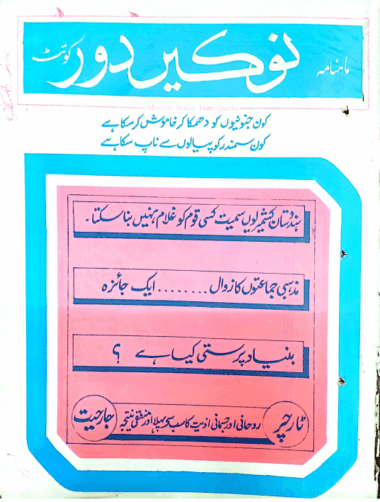 ماہنامہ نوکیں دور کوئٹہ
Monthly Nokin Daur Quetta
کون جنونیوں کو دھمکا کر خاموش کر سکا ہے
کون سمندر کو پیالوں سے ناپ سکا ہے
ہندوستان کشمیریوں سمیت کسی قوم کو غلام نہیں بنا سکتا۔
مذہبی جماعتوں کا زوال ........ ایک جائزہ
بنیاد پرستی کیا ہے ؟
ٹارچر روحانی اور جسمانی اذیت کا سب سے پہلا اور منطقی نتیجہ جارحیت